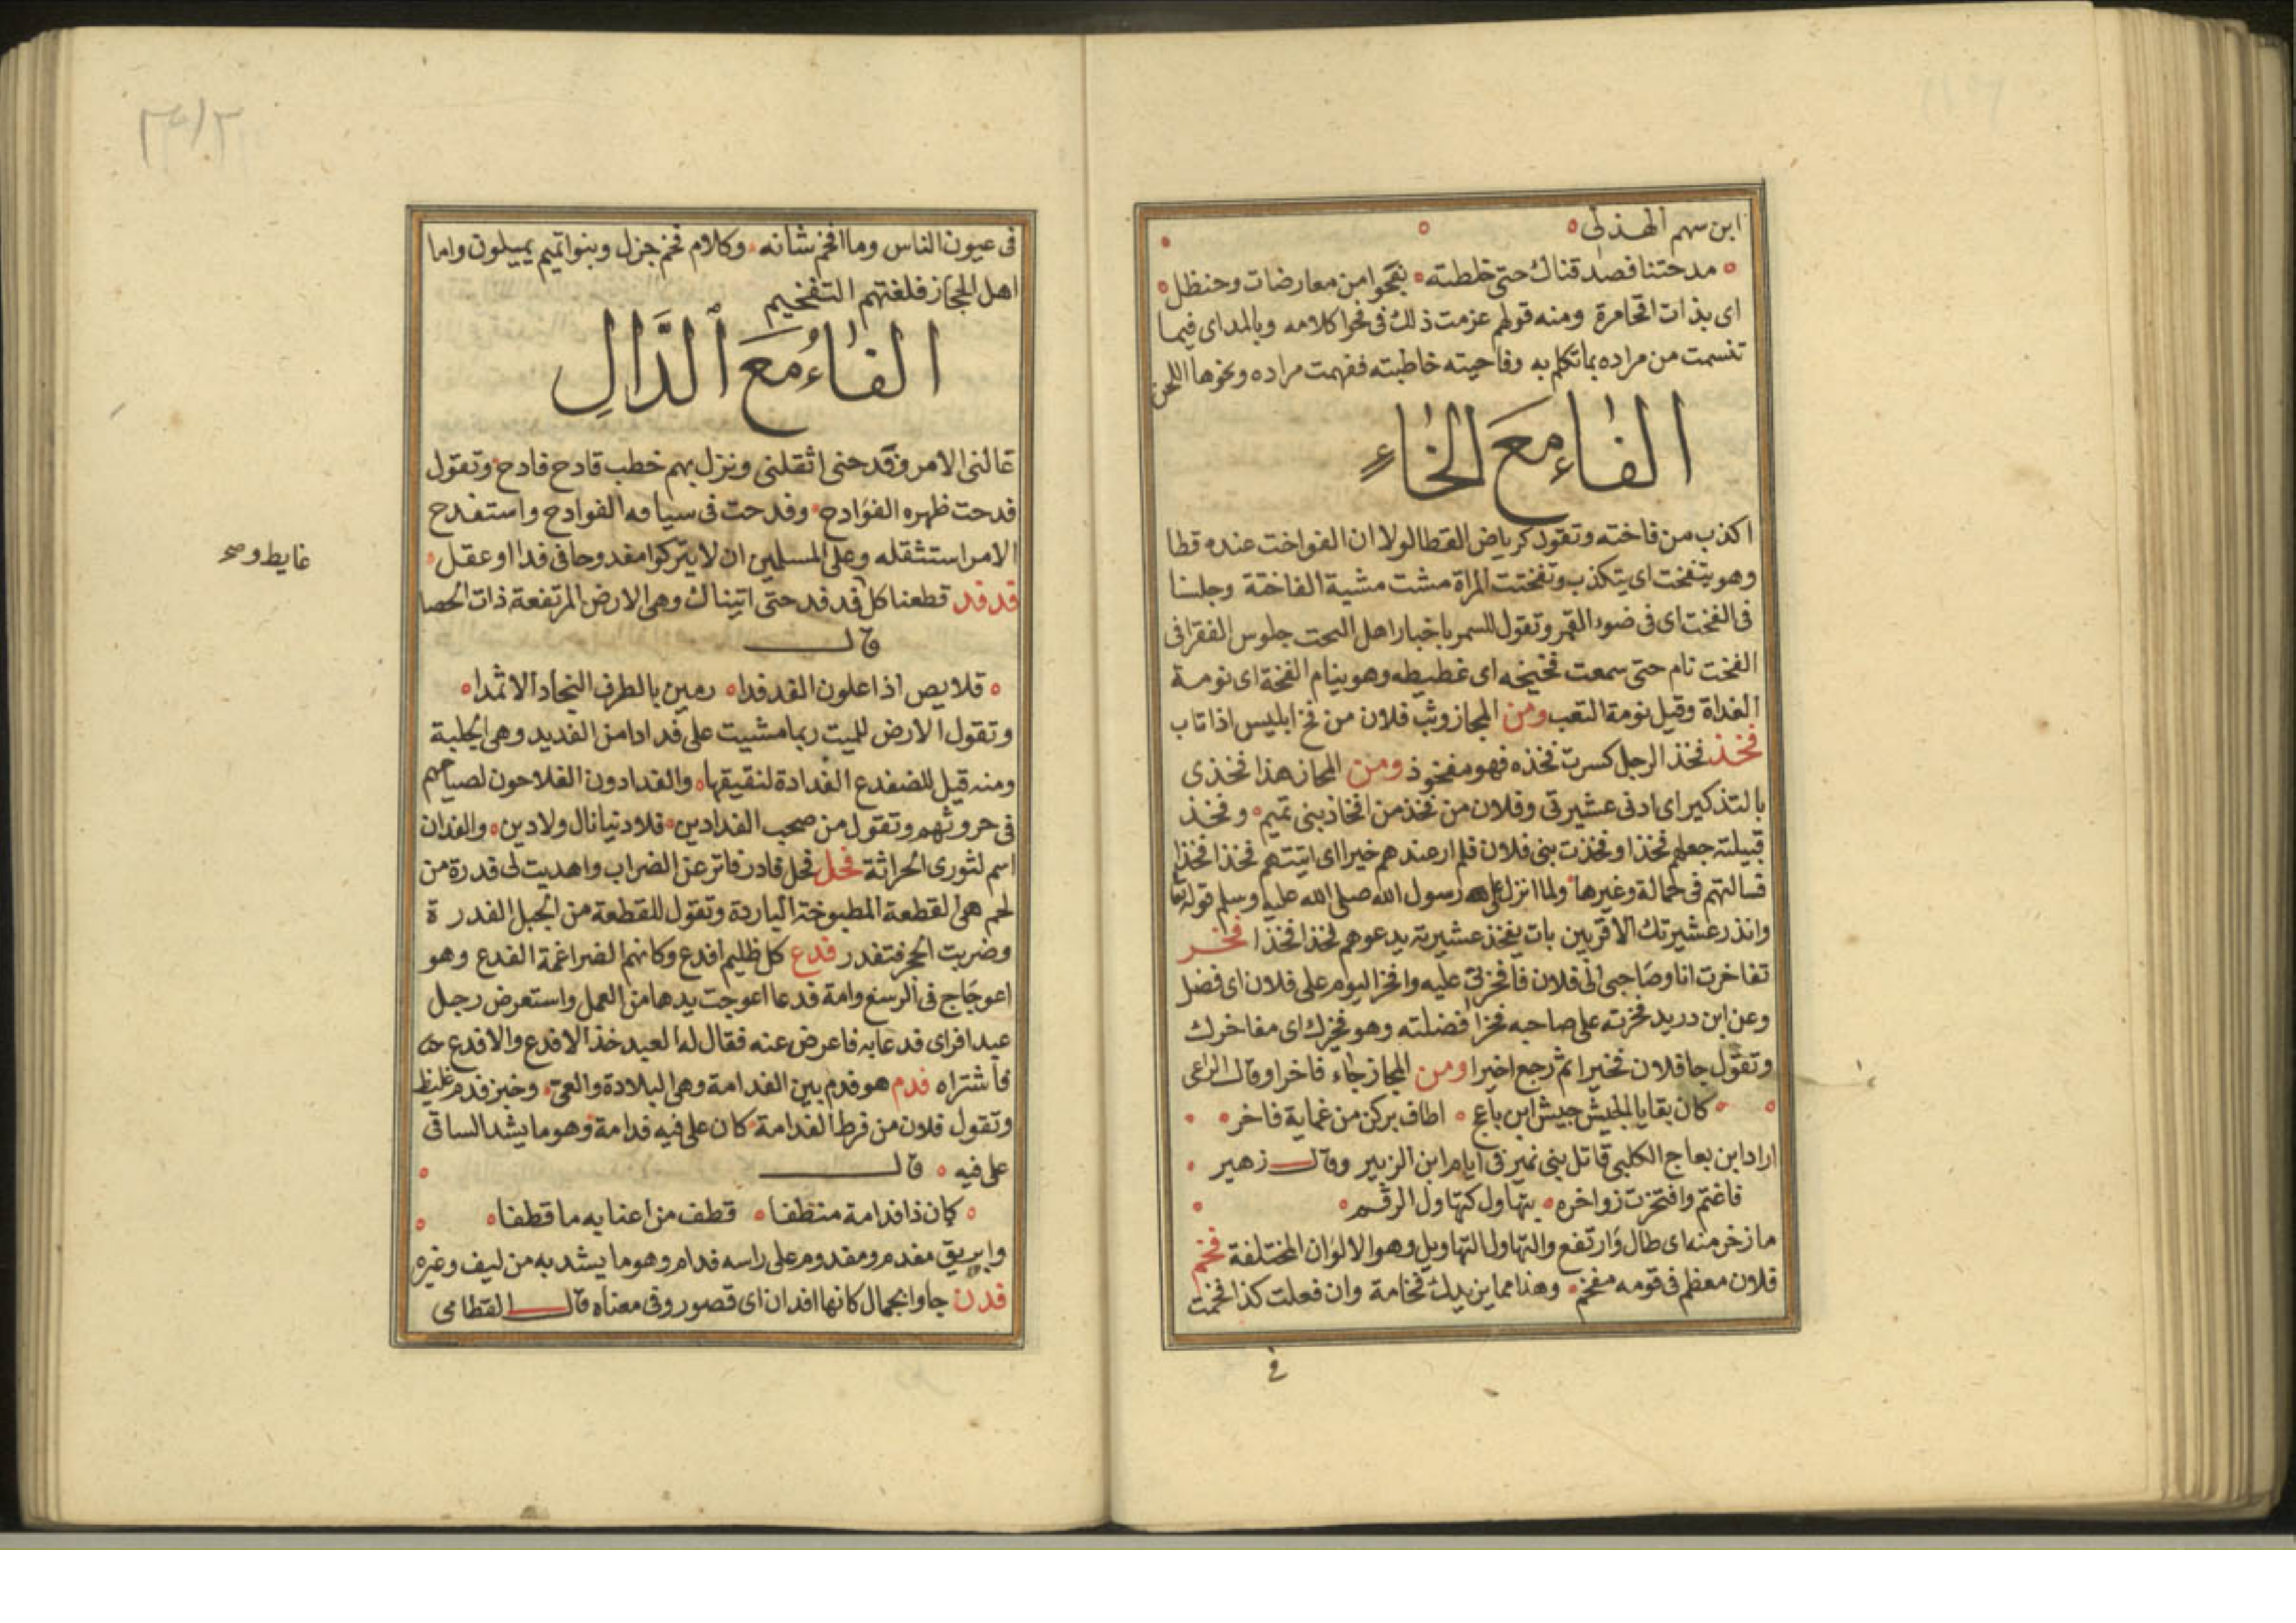 ابن سهم الهذلى
مدحتنا فصدقناك حتى خلطته بفحوا من معارضات وحنظل
اى بذات اقحامرة ومنه قولهم عزمت ذلك فى فحوا كلامه وبالمد اى فيما
تنسمت من مراده بما تكلم به وفاحيته خاطبته ففهمت مراده ونحوها اللحن
الفاء مع الخاء
اكذب من فاخته وتقول كرياض القطا لولا ان الفواخت عنده قطا
وهو يتفخت اى يتكذب وتفختت المراة مشت مشية الفاختة وجلسنا
فى الفخت اى فى ضوء القمر وتقول للسمر باخبار اهل البحت جلوس الفقرا فى
الفخت نام حتى سمعت فخيخه اى غطيطه وهو ينام الفخة اى نومة
الغداة وقيل نومة التعب ومن المجاز وثب فلان من فخ ابليس اذا تاب
فخذ فخذ الرجل كسرت فخذه فهو مفخوذ ومن المجاز هذا فخذى
بالتذكير اى ادنى عشيرتى وفلان من فخذ من افخاذ بنى تميم وفخذ
قبيلته جعلهم فخذا وفخذت بنى فلان فلم ار عندهم خيرا اى اتيتهم فخذا فخذا
فسالتهم فى حمالة وغيرها ولما انزل على رسول الله صلى الله عليه وسلم قوله تعا
وانذر عشيرتك الاقربين بات يفخذ عشيرته يدعوهم فخذا فخذا فخر
تفاخرت انا وصاحبى الى فلان فافخرنى عليه وافخر اليوم على فلان اى فضل
وعن ابن دريد فخرته على صاحبه فخرا فضلته وهو فخيرك اى مفاخرك
وتقول جا فلان فخيرا ثم رجع اخيرا ومن المجاز جاء فاخرا وقال الراعى
كان بقايا الجيش جيش ابن باعج اطاف بركن من عماية فاخر
اراد ابن بعاج الكلبى قاتل بنى نمير فى ايام ابن الزبير وقال زهير
فاغتم وافتخرت زواخره بتهاول كتهاول الرقم
ما زخر منه اى طال وارتفع والتهاول التهاويل وهو الالوان المختلفة فخم
فلان معظم فى قومه مفخم وهذا مما يزيدك فخامة وان فعلت كذا فخمت
فى
فى عيون الناس وما افخم شانه وكلام فخم جزل وبنوا تميم يميلون واما
اهل الحجاز فلغتهم التفخيم
الفاء مع الدال
غالنى الامر وفدحنى اثقلنى ونزل بهم خطب قادح فادح وتقول
فدحت ظهره الفوادح وفدحت فى سيامه الفوادح واستفدح
الامر استثقله وعلى المسلمين ان لا يتركوا مفدوحا فى فدا او عقل
فدفد قطعنا كل فدفد حتى اتيناك وهى الارض المرتفعة ذات الحصا
قال
قلايص اذا علون الفدفدا رمين بالطرف النجاد الاثمدا
وتقول الارض للميت ربما مشيت على فدادا من الفديد وهى الجلبة
ومنه قيل للضفدع الفدادة لنقيقها والفدادون الفلاحون لصياحهم
فى حروثهم وتقول من صحب الفدادين فلا دنيا نال ولا دين والفدان
اسم لثورى الحراثة فحل فحل فادر فاتر عن الضراب واهديت لى فدرة من
لحم هى القطعة المطبوخة الباردة وتقول للقطعة من الجبل الفدرة
وضربت الحجر فتفدر فدع كل ظليم افدع وكانهم الضراغمة الفدع وهو
اعوجاج فى الرسغ وامة فدعا اعوجت يدها من العمل واستعرض رجل
عبدا فراى فدعا به فاعرض عنه فقال له العبد خذ الافدع والا فدع
فاشتراه فدم هو فدم بين الفدامة وهى البلادة والعى وخبز فدم غليظ
وتقول فلان من فرط الفدامة كان على فيه فدامة وهو ما يشد الساقى
على فيه قال
كان ذا فدامة منطفا قطف من اعنابه ما قطفا
وابريق مفدم ومفدوم على راسه فدام وهو ما يشد به من ليف وغيره
فدن جاوا بجمال كانها افدان اى قصور وفى معناه قال القطامى
غايط وصح